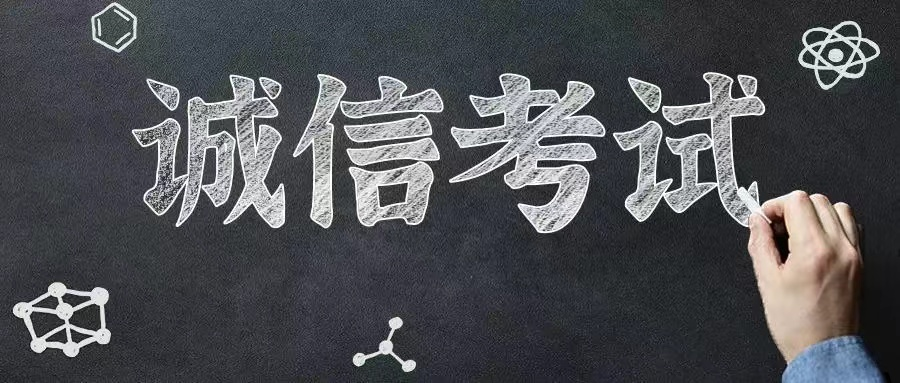 诚信考试